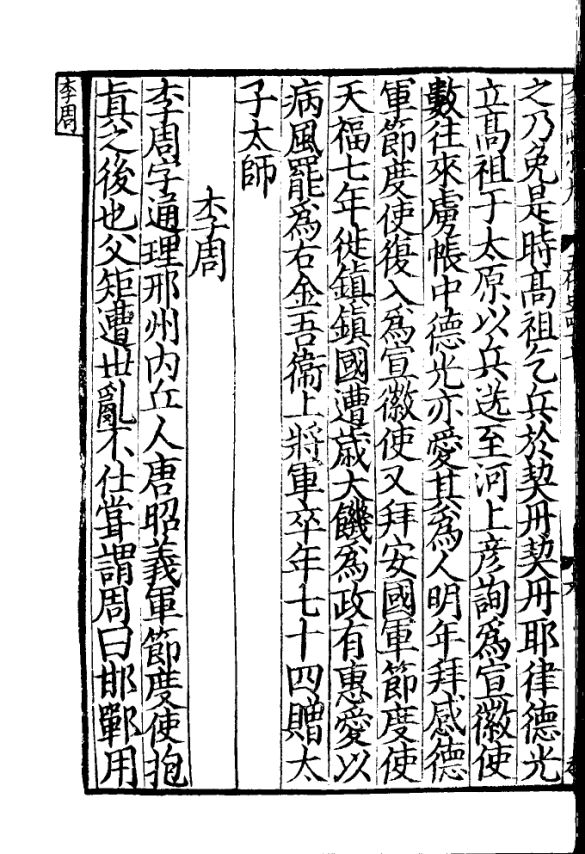 之乃免是時髙祖乞兵於契丹契丹耶律德光
立髙祖于太原以兵送至河上彦詢爲宣徽使
數往來虜帳中德光亦愛其爲人明年拜感德
軍節度使復入爲宣徽使又拜安國軍節度使
天福七年徙鎮鎮國遭歳大饑爲政有惠愛以
病風罷爲右金吾衞上將軍卒年七十四贈太
子太師
李周
李周字通理邢州内丘人唐昭義軍節度使抱
眞之後也父矩遭世亂不仕甞謂周曰邯鄲用
李周